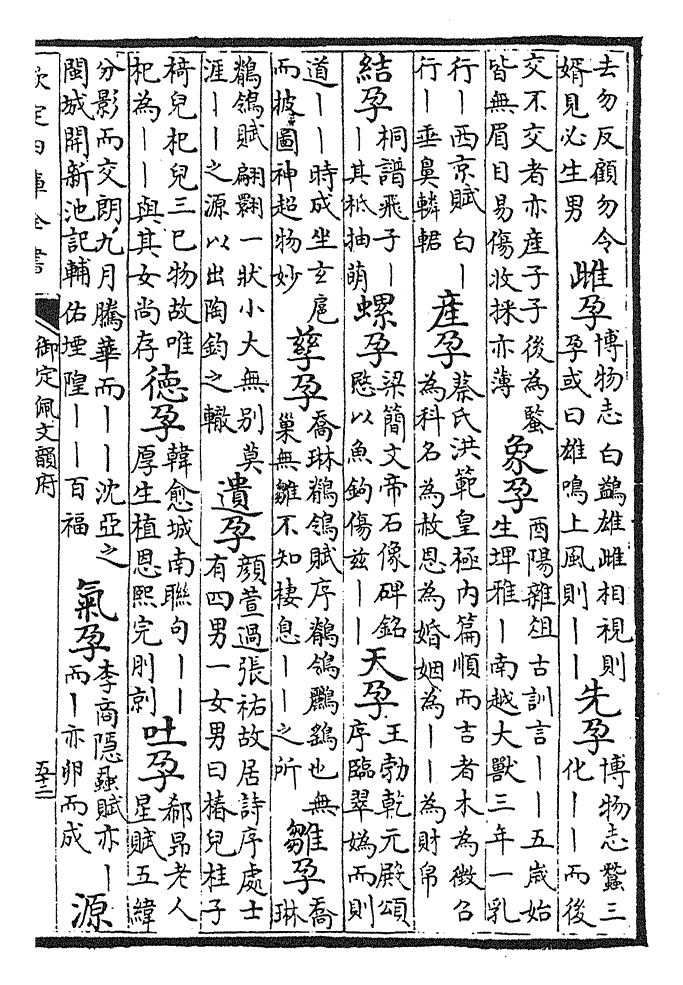 去勿反顧勿令
婿見必生男
雌孕
博物志白鷁雄雌相視則
孕或曰雄鳴上風則——
先孕
博物志蠶三
化——而後
交不交者亦産子子後為蠶
皆無眉目易傷收採亦薄
象孕
酉陽雜俎古訓言——五歳始
生埤雅—南越大獸三年一乳
行—西京賦白—
行—垂鼻轔輑
産孕
蔡氏洪範皇極内篇順而吉者木為徴召
為科名為赦恩為婚姻為——為財帛
結孕
桐譜飛子—
—其柢抽萌
螺孕
梁簡文帝石像碑銘
愍以魚鉤傷兹——
天孕
王勃乾元殿頌
序臨翠媯而則
道——時成坐玄扈
而披圖神超物妙
孳孕
喬琳鶺鴒賦序鶺鴒也無
巢無雛不知棲息——之所
雛孕
喬
琳
鶺鴒賦翩翾一狀小大無别莫
涯——之源以出陶鈞之轍
遺孕
顔萱過張祐故居詩序處士
有四男一女男曰椿兒桂子
椅兒杞兒三已物故唯
杞為——與其女尚存
德孕
韓愈城南聯句——
厚生植恩熙完刖剠
吐孕
郗昻老人
星賦五緯
分影而交朗九月騰華而——沈亞之
閩城開新池記輔佑堙隍——百福
氣孕
李商隱蝨賦亦—
而—亦卵而成
源
欽定四庫全書
御定佩文韻府